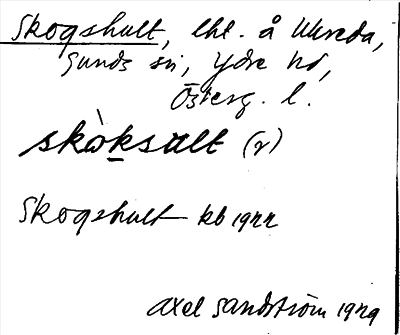 Skogshult, lht. å Ukreda,
Sunds sn, Ydre hd,
Österg. l.
skòksult (r)
Skogshult kb 1922
Axel Sandström 1929